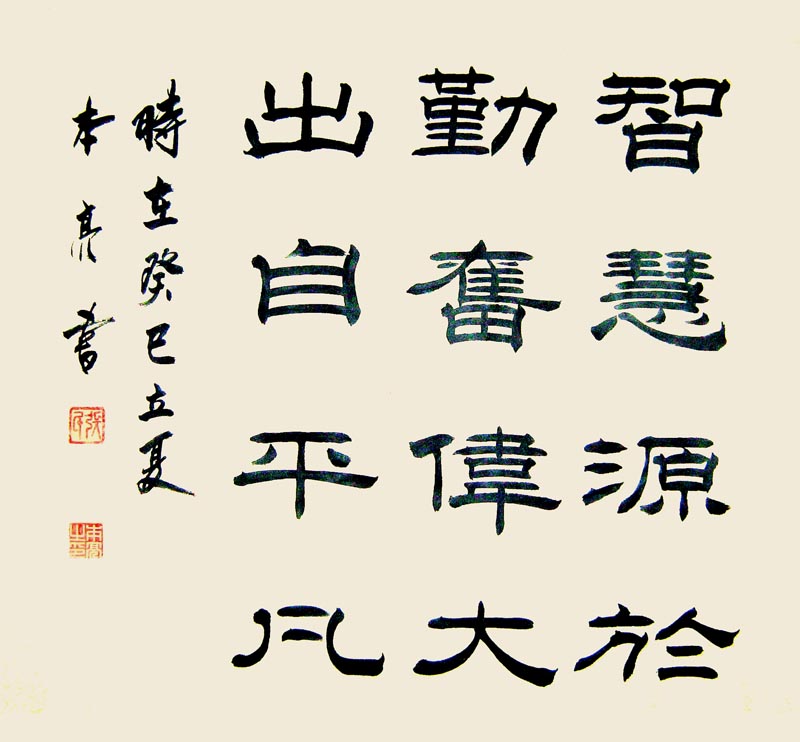 智慧源於
勤奮偉大
出自平凡
時在癸巳立夏
本亮書